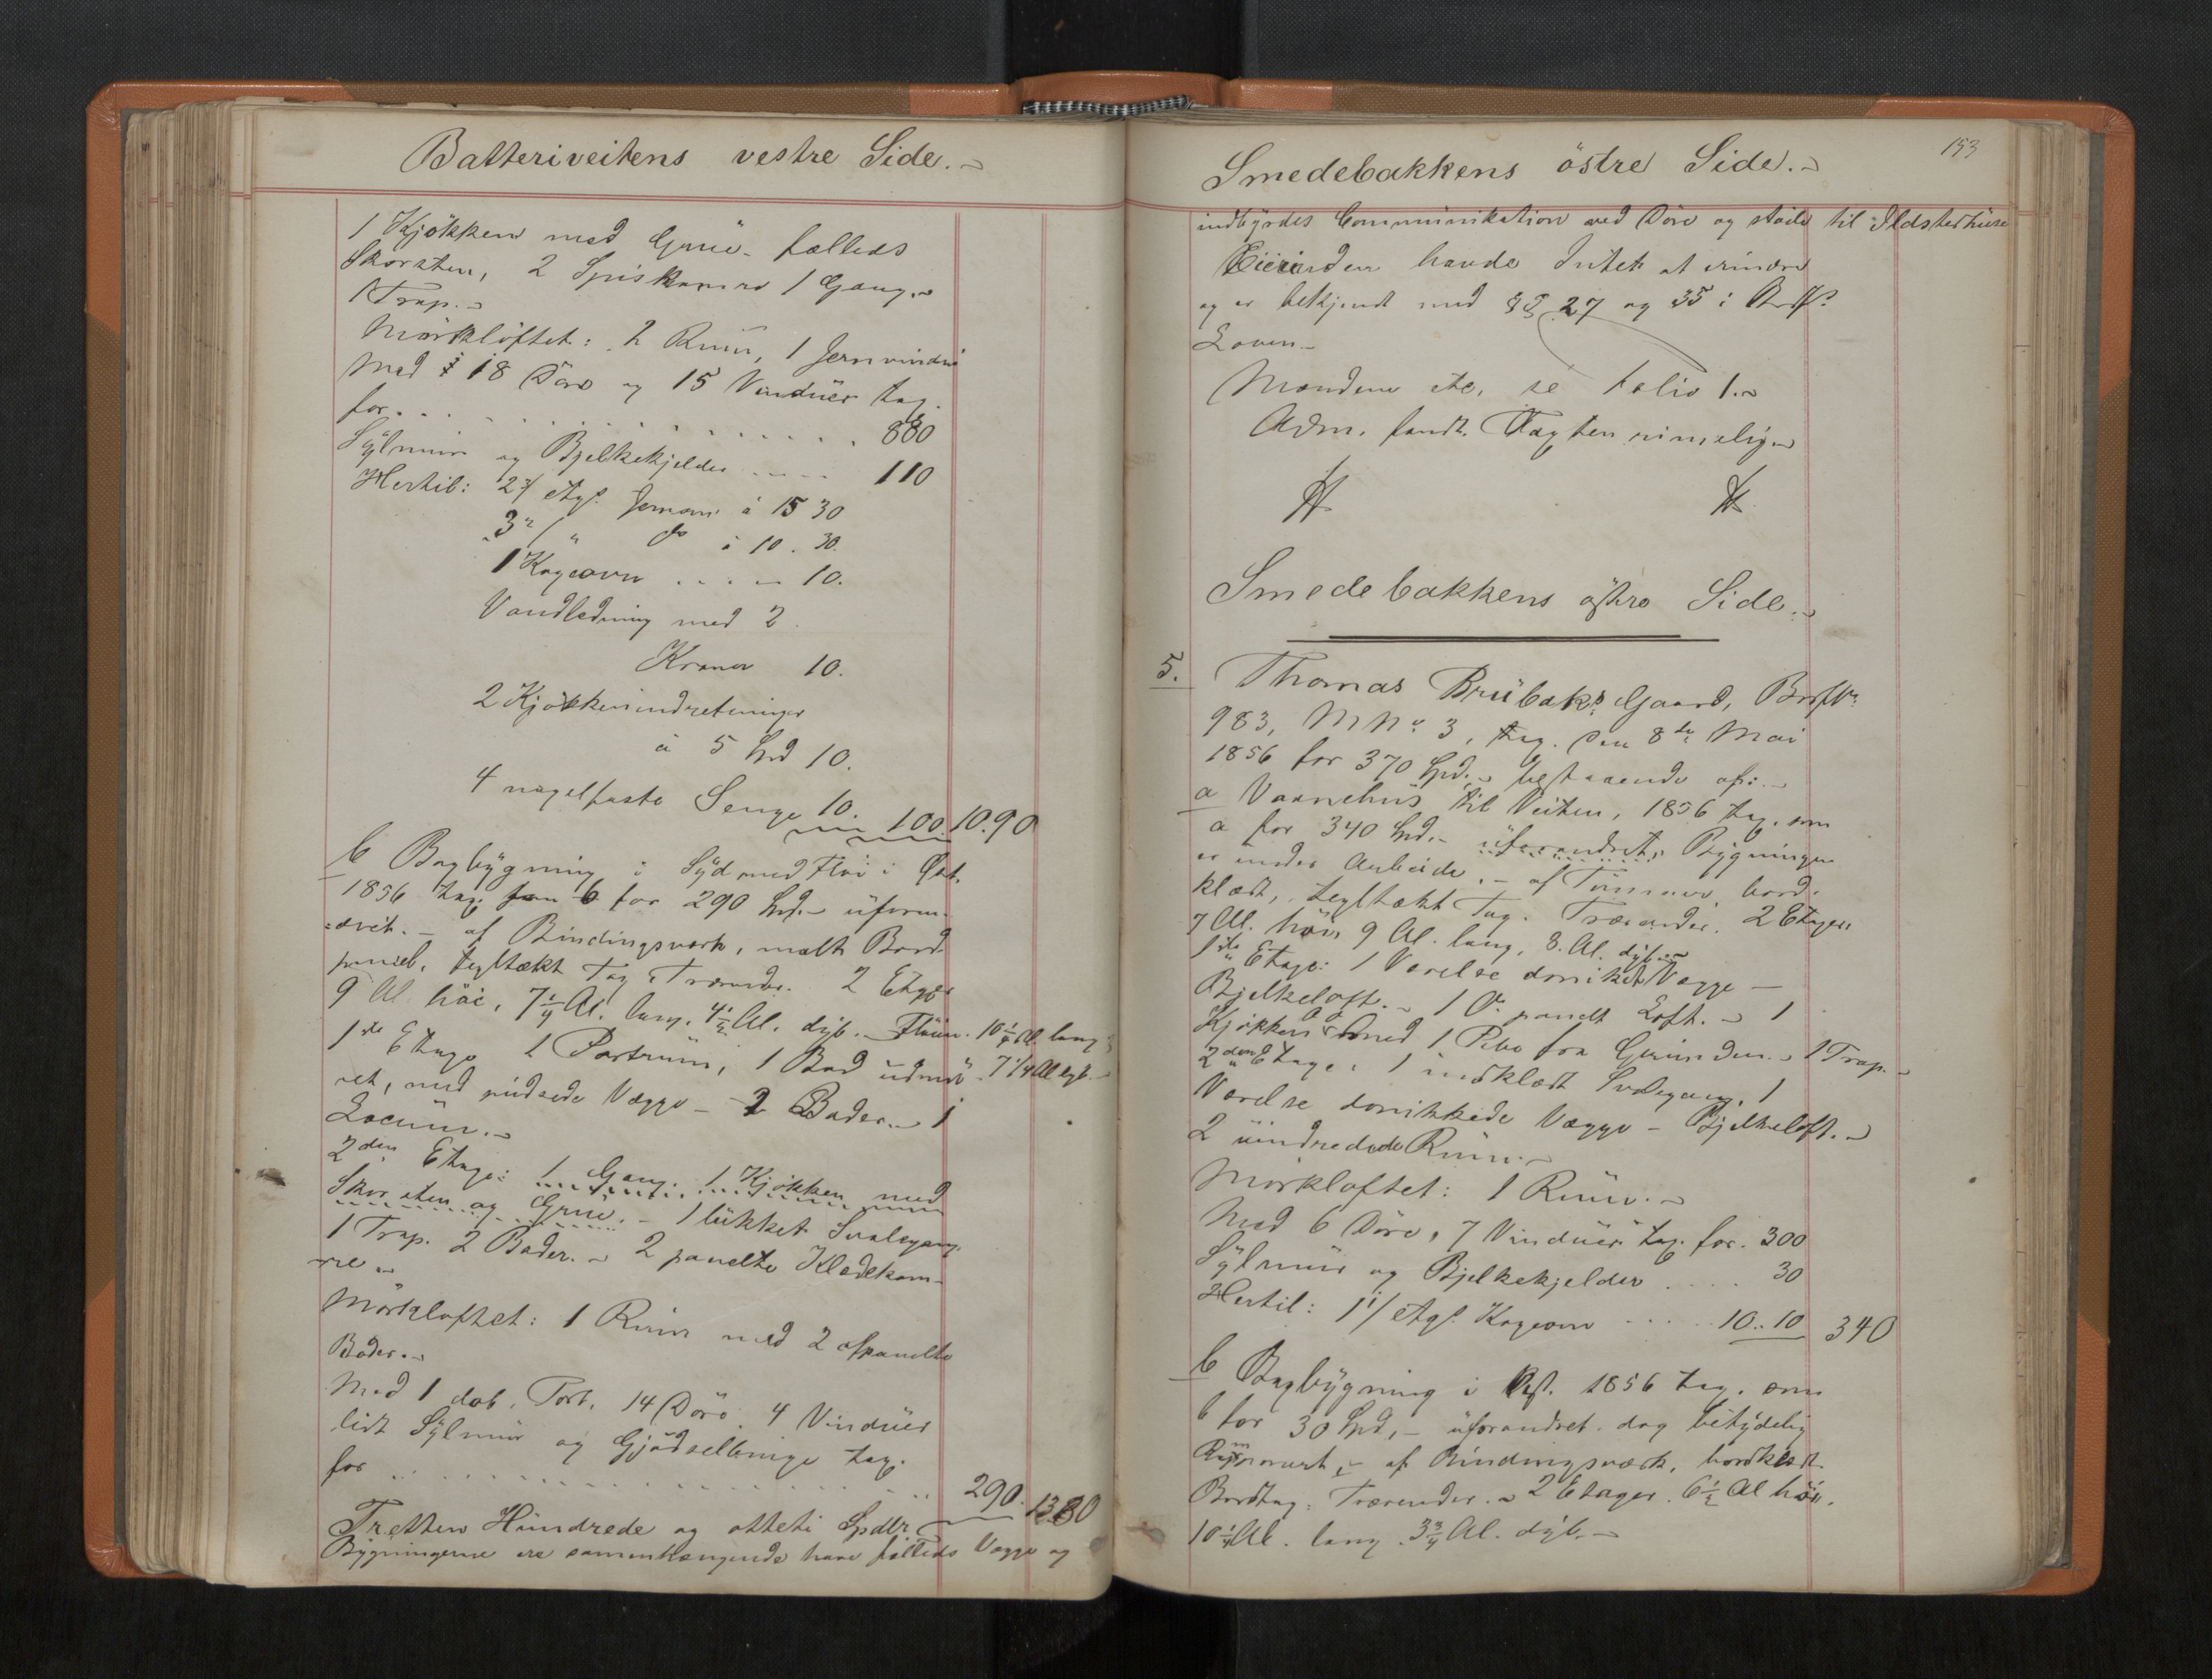 Batteriveitens vestre Side.
1 Kjökken med Grue fælleds
Skorsten, 2 Spiskamre 1 Gang.
1 Trap.
Mörkloftet: 2 Rum, 1 Jernvindu
Med 18 Döre og 15 Vinduer tax.
for . . . 880
Sylmur og Bjelkekjelder . . . 110
Hertil: 2 2/ Etgs. Jernovn à 15 30
3 " / " do à 10. 30.
1 Kogeovn . . . 10.
Vandledning med 2
Kraner 10.
2 Kjökkenindretninger
à 5 Spd 10.
4 nagelfaste Senge 10. 100. 10.90
b Bagbygning i Syd med Flöi i Öst.
1856 tax. som b for 290 Spd. uforan-
dret. – af Bindingsværk, malt Bord-
paneel, tegltækt Tag, Trærender. 2 Etager
9 Al. höi, 7 1/4 Al. lang, 4 1/2 Al. dyb. – Flöien 10 1/4 Al. lang
1ste Etage 1 Portrum, 1 Bod udmu- 7 1/4 Al. dyb.
ret, med pudsede Vægge – 2 Boder. 1
Locum.
2den Etage: 1 Gang. 1 Kjökken med
Skorsten og Grue. – 1 lukket Svalegang.
1 Trap. 2 Boder. 2 panelte Klædekam-
re
Mörkloftet: 1 Rum med 2 afpanelte
Boder.
Med 1 dob. Port, 14 Döre, 4 Vinduer
lidt Sylmur og Gjödselbinge tax.
for . . . 290. 1380
Tretten Hundrede og otteti Spdlr.
Bygningerne ere sammenhængende have fælleds Vægge og
153
Smedebakkens östre Side.
indbyrdes Communikation ved Döre og stöde til Ildstedhuse
Eierinden havde Intet at erindre
og er bekjendt med §§ 27 og 35 i
Loven.
Mændene etc. se folio 1.
Adm. fandt Taxten rimelig.
Smedebakkens östre Side.
5. Thomas Brubaks Gaard,
983, M No. 3, tax. den 8de Mai
1856 for 370 Spd. bestaaende af:
a Vaanehus til Veiten, 1856 tax. som
a for 340 Spd. – uforandret, Bygningen
er under Arbeide. – af Tömmer, bord-
klædt, tegltækt Tag. Trærender. 2 Etager
7 Al. höi, 9 Al. lang, 8 Al. dyb.
1ste Etage: 1 Værelse donikede Vægge –
Bjelkeloft. – 1 Do panelt Loft. 1
Kjökken med 1 Pibe fra Grunden. 1 Trap.
2den Etage: 1 indklædt Svalegang. 1
Værelse donikkede Vægge – Bjelkeloft.
2 uindredede Rum.
Mörkloftet: 1 Rum.
Med 6 Döre, 7 Vinduer tax. for. 300
Sylmur og Bjelkekjelder . . . 30
Hertil: 1 1/ Etgs. Kogeovn . . . 10. 10 340
b Bagbygning i Vest. 1856 tax. som
b for 30 Spd. – uforandret. dog betydelig
af Bindingsværk, bordklædt
Bordtag, Trærender. 2 Etager. 6 1/2 Al höi.
10 1/4 Al. lang. 3 3/4 Al. dyb.